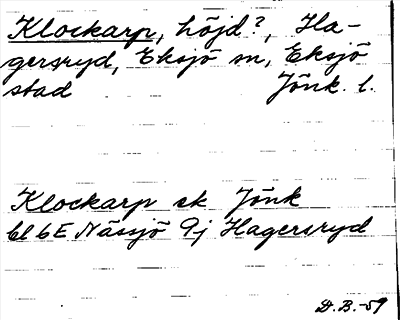 Klockarp, höjd?, Ha-
gersryd, Eksjö sn, Eksjö
stad Jönk. l.
Klockarp sk Jönk
bl 6E Nässjö 9j Hagersryd
D.B.-59